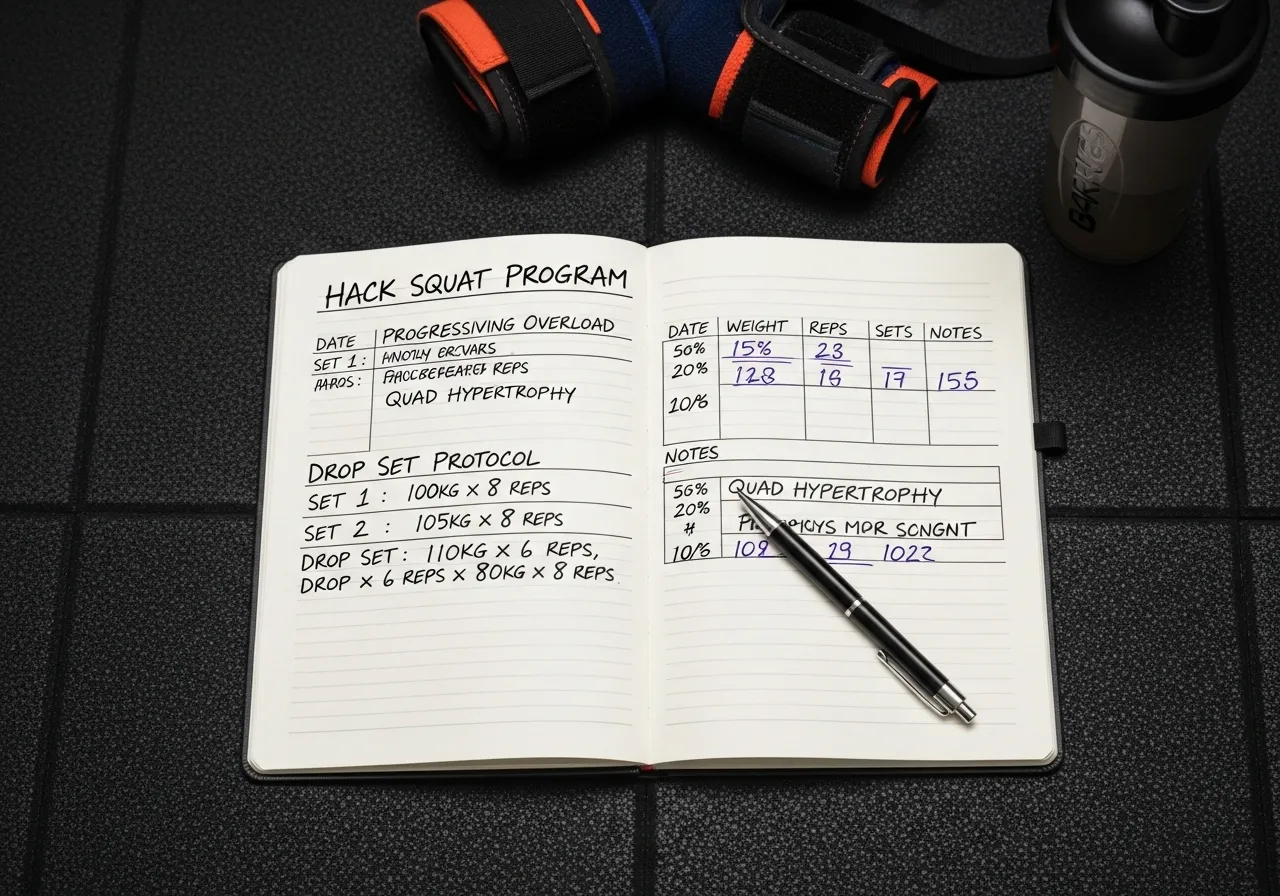 HACK SQUAT PROGRAM
DATE PROGRESSIVING OVERLOAD
SET 1:
REPS
QUAD HYPERTROPHY
DROP SET PROTOCOL
SET 1 : 100KG × 8 REPS
SET 2 : 105KG × 8 REPS
DROP SET: 110KG × 6 REPS,
DROP × 6 REPS × 80KG × 8 REPS.
DATE WEIGHT REPS SETS NOTES
50% 15% 23
20% 128 16 17 155
10/6
NOTES
56% QUAD HYPERTROPHY
20%
# MDR SCNGNT
10/6 109 29 1022